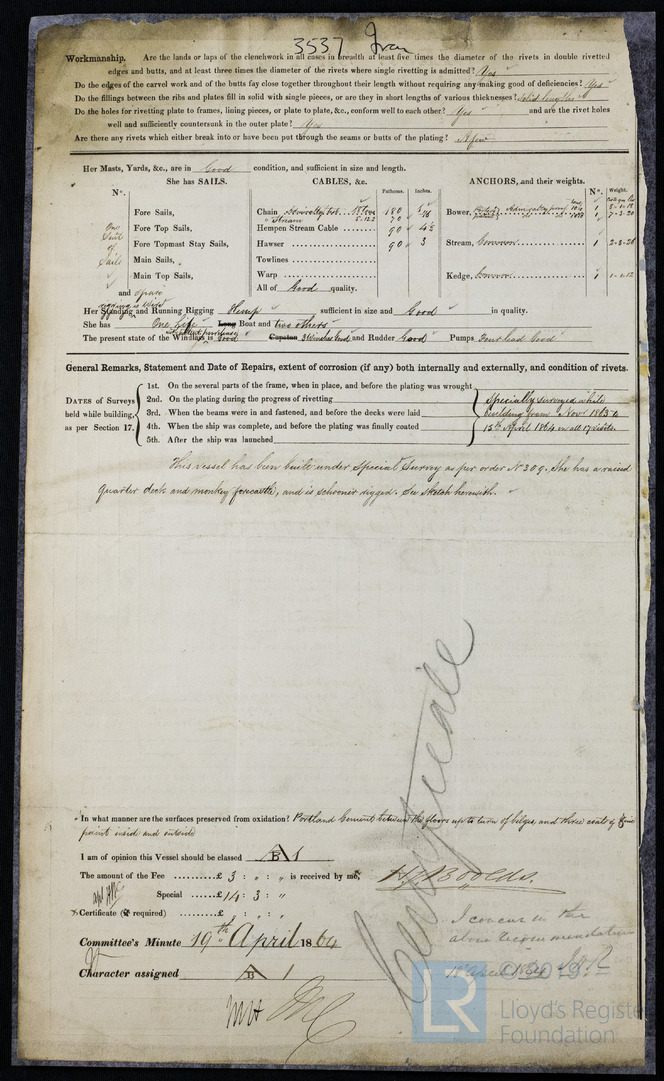 3537 Iron
Workmanship. Are the lands or laps of the clenchwork in all cases in breadth at least five times the diameter of the rivets in double rivetted
edges and butts, and at least three times the diameter of the rivets where single rivetting is admitted? Yes
Do the edges of the carvel work and of the butts fay close together throughout their length without requiring any making good of deficiencies? Yes
Do the fillings between the ribs and plates fill in solid with single pieces, or are they in short lengths of various thicknesses? Solid lengths
Do the holes for rivetting plate to frames, lining pieces, or plate to plate, &c., conform well to each other? Yes and are the rivet holes
well and sufficiently countersunk in the outer plate? Yes
Are there any rivets which either break into or have been put through the seams or butts of the plating? A few
Her Masts, Yards, &c., are in Good condition, and sufficient in size and length.
She has SAILS. CABLES, &c. ANCHORS, and their weights.
No. Fathoms. Inches. No. Weight.
Fore Sails, Chain 180 Bower,
Stream 70
One Fore Top Sails, Hempen Stream Cable 90 4½
Suit of Fore Topmast Stay Sails, Hawser 90 3 Stream, Common 1
Sails Main Sails, Towlines
Main Top Sails, Warp Kedge, Common 1 1.1.12
and spare All of Good quality.
rigging is Wire
Her Standing and Running Rigging Hemp sufficient in size and Good in quality.
She has One Life Long Boat and two others
The present state of the Windlass is Good Capstan and Rudder Good Pumps Four lead Good
General Remarks, Statement and Date of Repairs, extent of corrosion (if any) both internally and externally, and condition of rivets.
DATES of Surveys held while building, as per Section 17.
1st. On the several parts of the frame, when in place, and before the plating was wrought
2nd. On the plating during the progress of rivetting
3rd. When the beams were in and fastened, and before the decks were laid
4th. When the ship was complete, and before the plating was finally coated
5th. After the ship was launched
Specially surveyed while
building from Nov 1863 to
15th April 1864 in all 17 visits
This vessel has been built under Special Survey as per order No 309. She has a raised
quarter deck and monkey forecastle, and is schooner rigged. See sketch herewith.
In what manner are the surfaces preserved from oxidation? Portland Cement between the floors up to turn of bilges, and three coats of
paint inside and outside
I am of opinion this Vessel should be classed A B 1
The amount of the Fee ......£ 3 : „ : „ is received by me,
Special ......£ 14 : 3 : „
Certificate (if required) ......£ : „ : „
Certificate
I concur in the
above recommendation
Committee's Minute 19th April 1864
Character assigned A B 1
18 April 1864
LR
© 2019
Lloyd's Register
Foundation